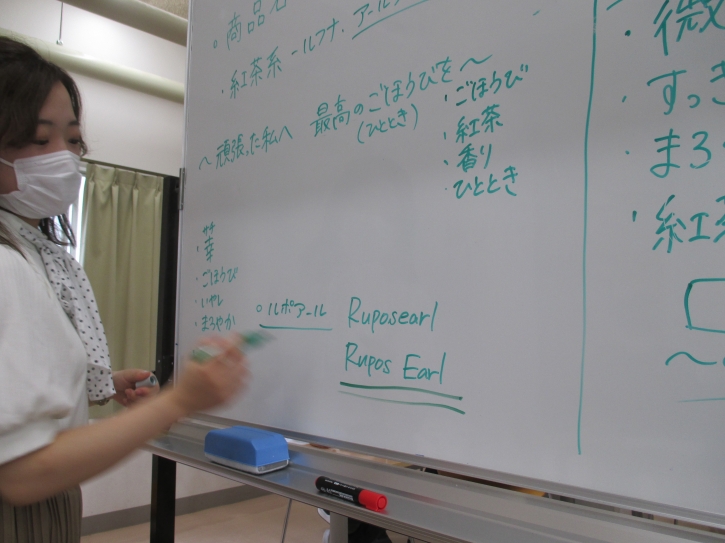 。商品名
・紅茶系 ールフナ、アール
〜頑張った私へ 最高のごほうびを〜
(ひととき)
・ごほうび
・紅茶
・香り
・ひととき
・幸
・ごほうび
・いやし
・まろやか
○ルポアール Ruposearl
Rupos Earl
・微
・すっき
・まろ
・紅茶
〜